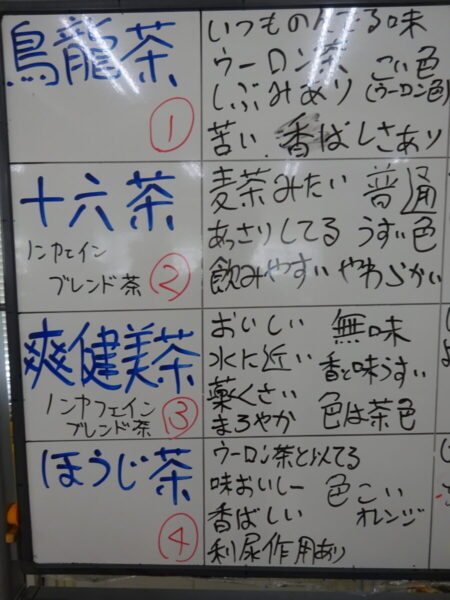 烏龍茶
①
いつものんでる味
ウーロン茶 こい色
しぶみあり (ウーロン色)
苦い 香ばしさあり
十六茶
ノンカェイン
ブレンド茶 ②
麦茶みたい 普通
あっさりしてる うすい色
飲みやすい やわらかい
爽健美茶
ノンカフェイン
ブレンド茶 ③
おいしい 無味
水に近い 香と味うすい
薬くさい
まろやか 色は茶色
ほうじ茶
④
ウーロン茶と似てる
味おいしー 色こい
香ばしい オレンジ
利尿作用あり